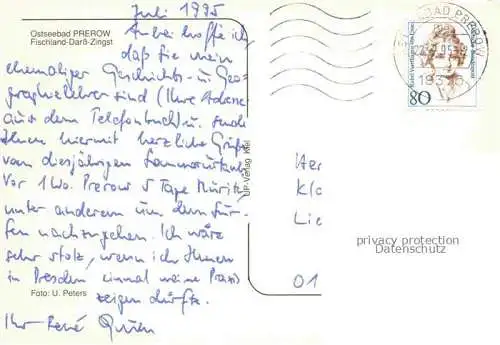 Ostseebad PREROW
Fischland-Darß-Zingst
Juli 1995
Anbei hoffe ich
daß Sie mein
ehemaliger Geschichts- u. Geo-
graphielehrer sind (Ihre Adresse
aus dem Telefonbuch) u. sende
Ihnen hiermit herzliche Grüße
vom diesjährigen Sommerurlaub.
Vor 1 Wo. Prerow 5 Tage Müritz
unter anderem um dem Sur-
fen nachzugehen. Ich wäre
sehr stolz, wenn ich Ihnen
in Dresden einmal meine Praxis
zeigen dürfte.
Ihr René
Foto: U. Peters
UP-Verlag Kiel
OSTSEEBAD PREROW
80
Her
Klo
Lie
01
privacy protection
Datenschutz